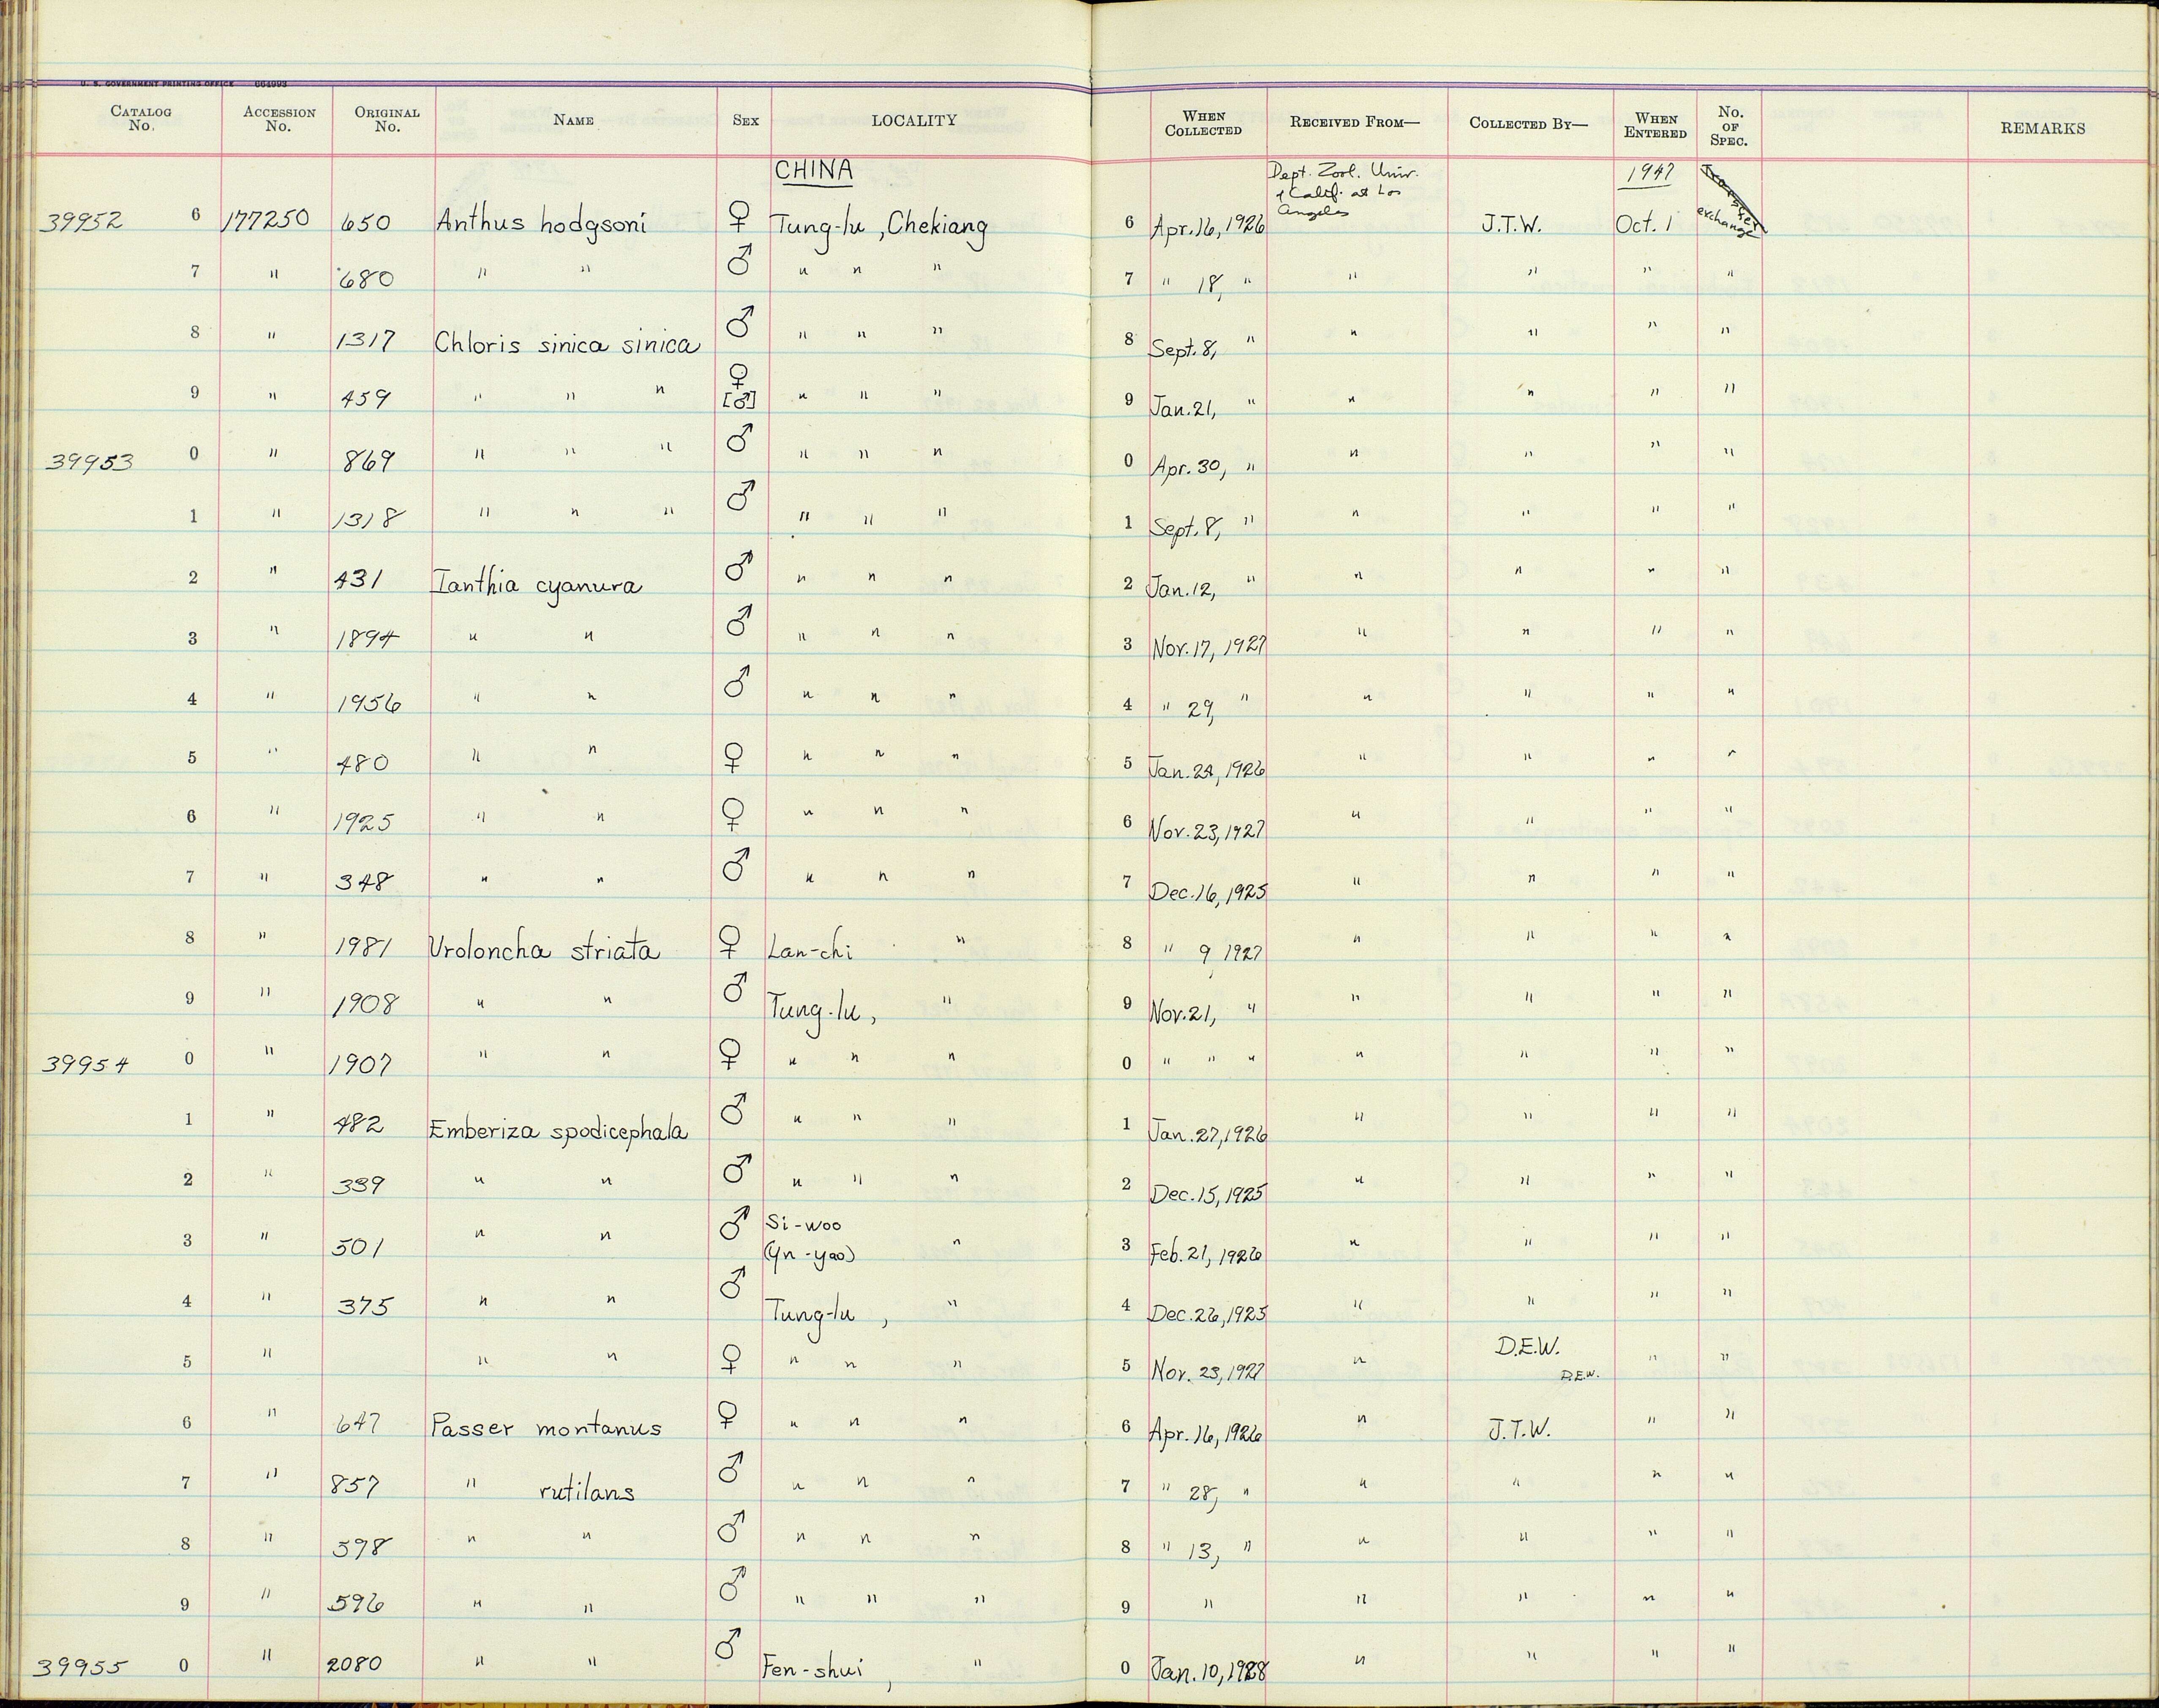 U. S. GOVERNMENT PRINTING OFFICE
CATALOG No. ACCESSION No. ORIGINAL No. NAME SEX LOCALITY WHEN COLLECTED RECEIVED FROM— COLLECTED BY— WHEN ENTERED No. OF SPEC. REMARKS
CHINA Dept. Zool. Univ. of Calif. at Los Angeles 1947 Transfer
39952 6 177250 650 Anthus hodgsoni ♀ Tung-lu, Chekiang 6 Apr. 16, 1926 J.T.W. Oct. 1 exchange
7 " 680 " " ♂ " " " 7 " 18, " " " " "
8 " 1317 Chloris sinica sinica ♂ " " " 8 Sept. 8, " " " " "
9 " 459 " " " ♀ [♂] " " " 9 Jan. 21, " " " " "
39953 0 " 869 " " " ♂ " " " 0 Apr. 30, " " " " "
1 " 1318 " " " ♂ " " " 1 Sept. 8, " " " " "
2 " 431 Ianthia cyanura ♂ " " " 2 Jan. 12, " " " " "
3 " 1894 " " ♂ " " " 3 Nov. 17, 1927 " " " "
4 " 1956 " " ♂ " " " 4 " 29, " " " " "
5 " 480 " " ♀ " " " 5 Jan. 24, 1926 " " " "
6 " 1925 " " ♀ " " " 6 Nov. 23, 1927 " " " "
7 " 348 " " ♂ " " " 7 Dec. 16, 1925 " " " "
8 " 1981 Uroloncha striata ♀ Lan-chi " 8 " 9, 1927 " " " "
9 " 1908 " " ♂ Tung-lu, " 9 Nov. 21, " " " " "
39954 0 " 1907 " " ♀ " " " 0 " " " " " " "
1 " 482 Emberiza spodicephala ♂ " " " 1 Jan. 27, 1926 " " " "
2 " 339 " " ♂ " " " 2 Dec. 15, 1925 " " " "
3 " 501 " " ♂ Si-woo (Yn-yao) " 3 Feb. 21, 1926 " " " "
4 " 375 " " ♂ Tung-lu, " 4 Dec. 26, 1925 " " " "
5 " " " ♀ " " " 5 Nov. 23, 1927 " D.E.W. D.E.W. " "
6 " 647 Passer montanus ♀ " " " 6 Apr. 16, 1926 " J.T.W. " "
7 " 857 " rutilans ♂ " " " 7 " 28, " " " " "
8 " 598 " " ♂ " " " 8 " 13, " " " " "
9 " 596 " " ♂ " " " 9 " " " " "
39955 0 " 2080 " " ♂ Fen-shui, " 0 Jan. 10, 1928 " " " "